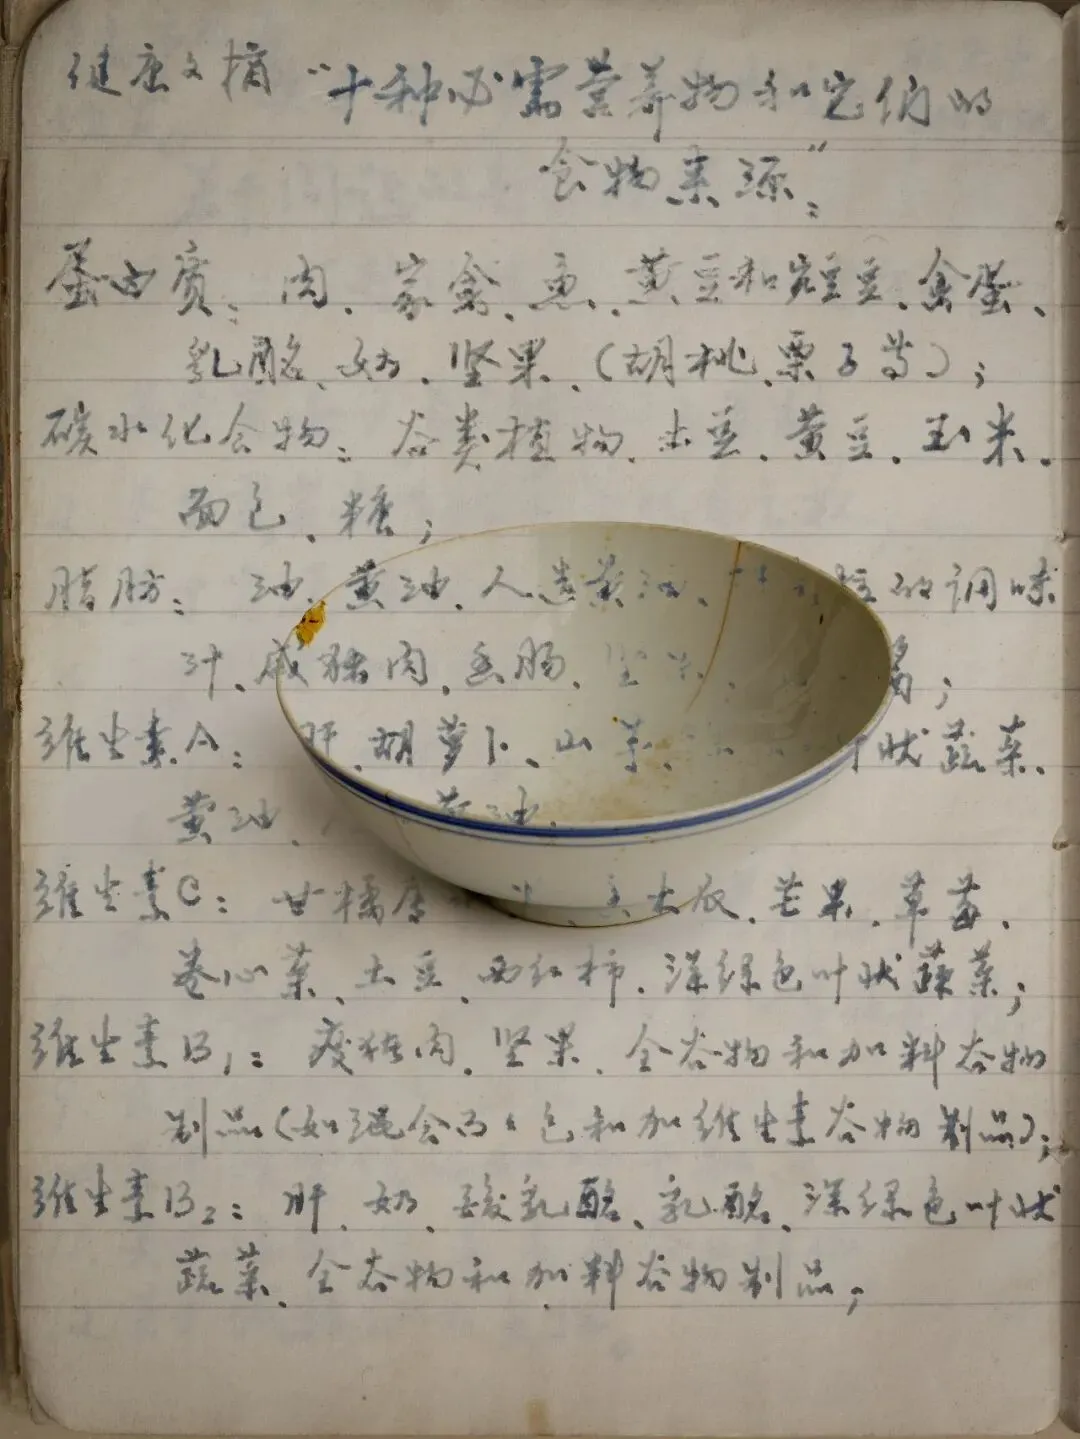 健康文摘 "十种必需营养物和它们的
食物来源":
蛋白质: 肉、家禽、鱼、黄豆和豌豆、禽蛋、
乳酪、奶、坚果、(胡桃、栗子等);
碳水化合物: 谷类植物、土豆、黄豆、玉米、
面包、糖;
脂肪: 油、黄油、人造黄油、的调味
汁、咸猪肉、香肠、坚
维生素A: 肝、胡萝卜、山芋、叶状蔬菜、
黄油、黄油、
维生素C: 甘橘、芒果、草莓、
卷心菜、土豆、西红柿、深绿色叶状蔬菜;
维生素B₁: 瘦猪肉、坚果、全谷物和加料谷物
制品(如包和加维生素谷物制品);
维生素B₂: 肝、奶、酸乳酪、乳酪、深绿色叶状
蔬菜、全谷物和加料谷物制品;